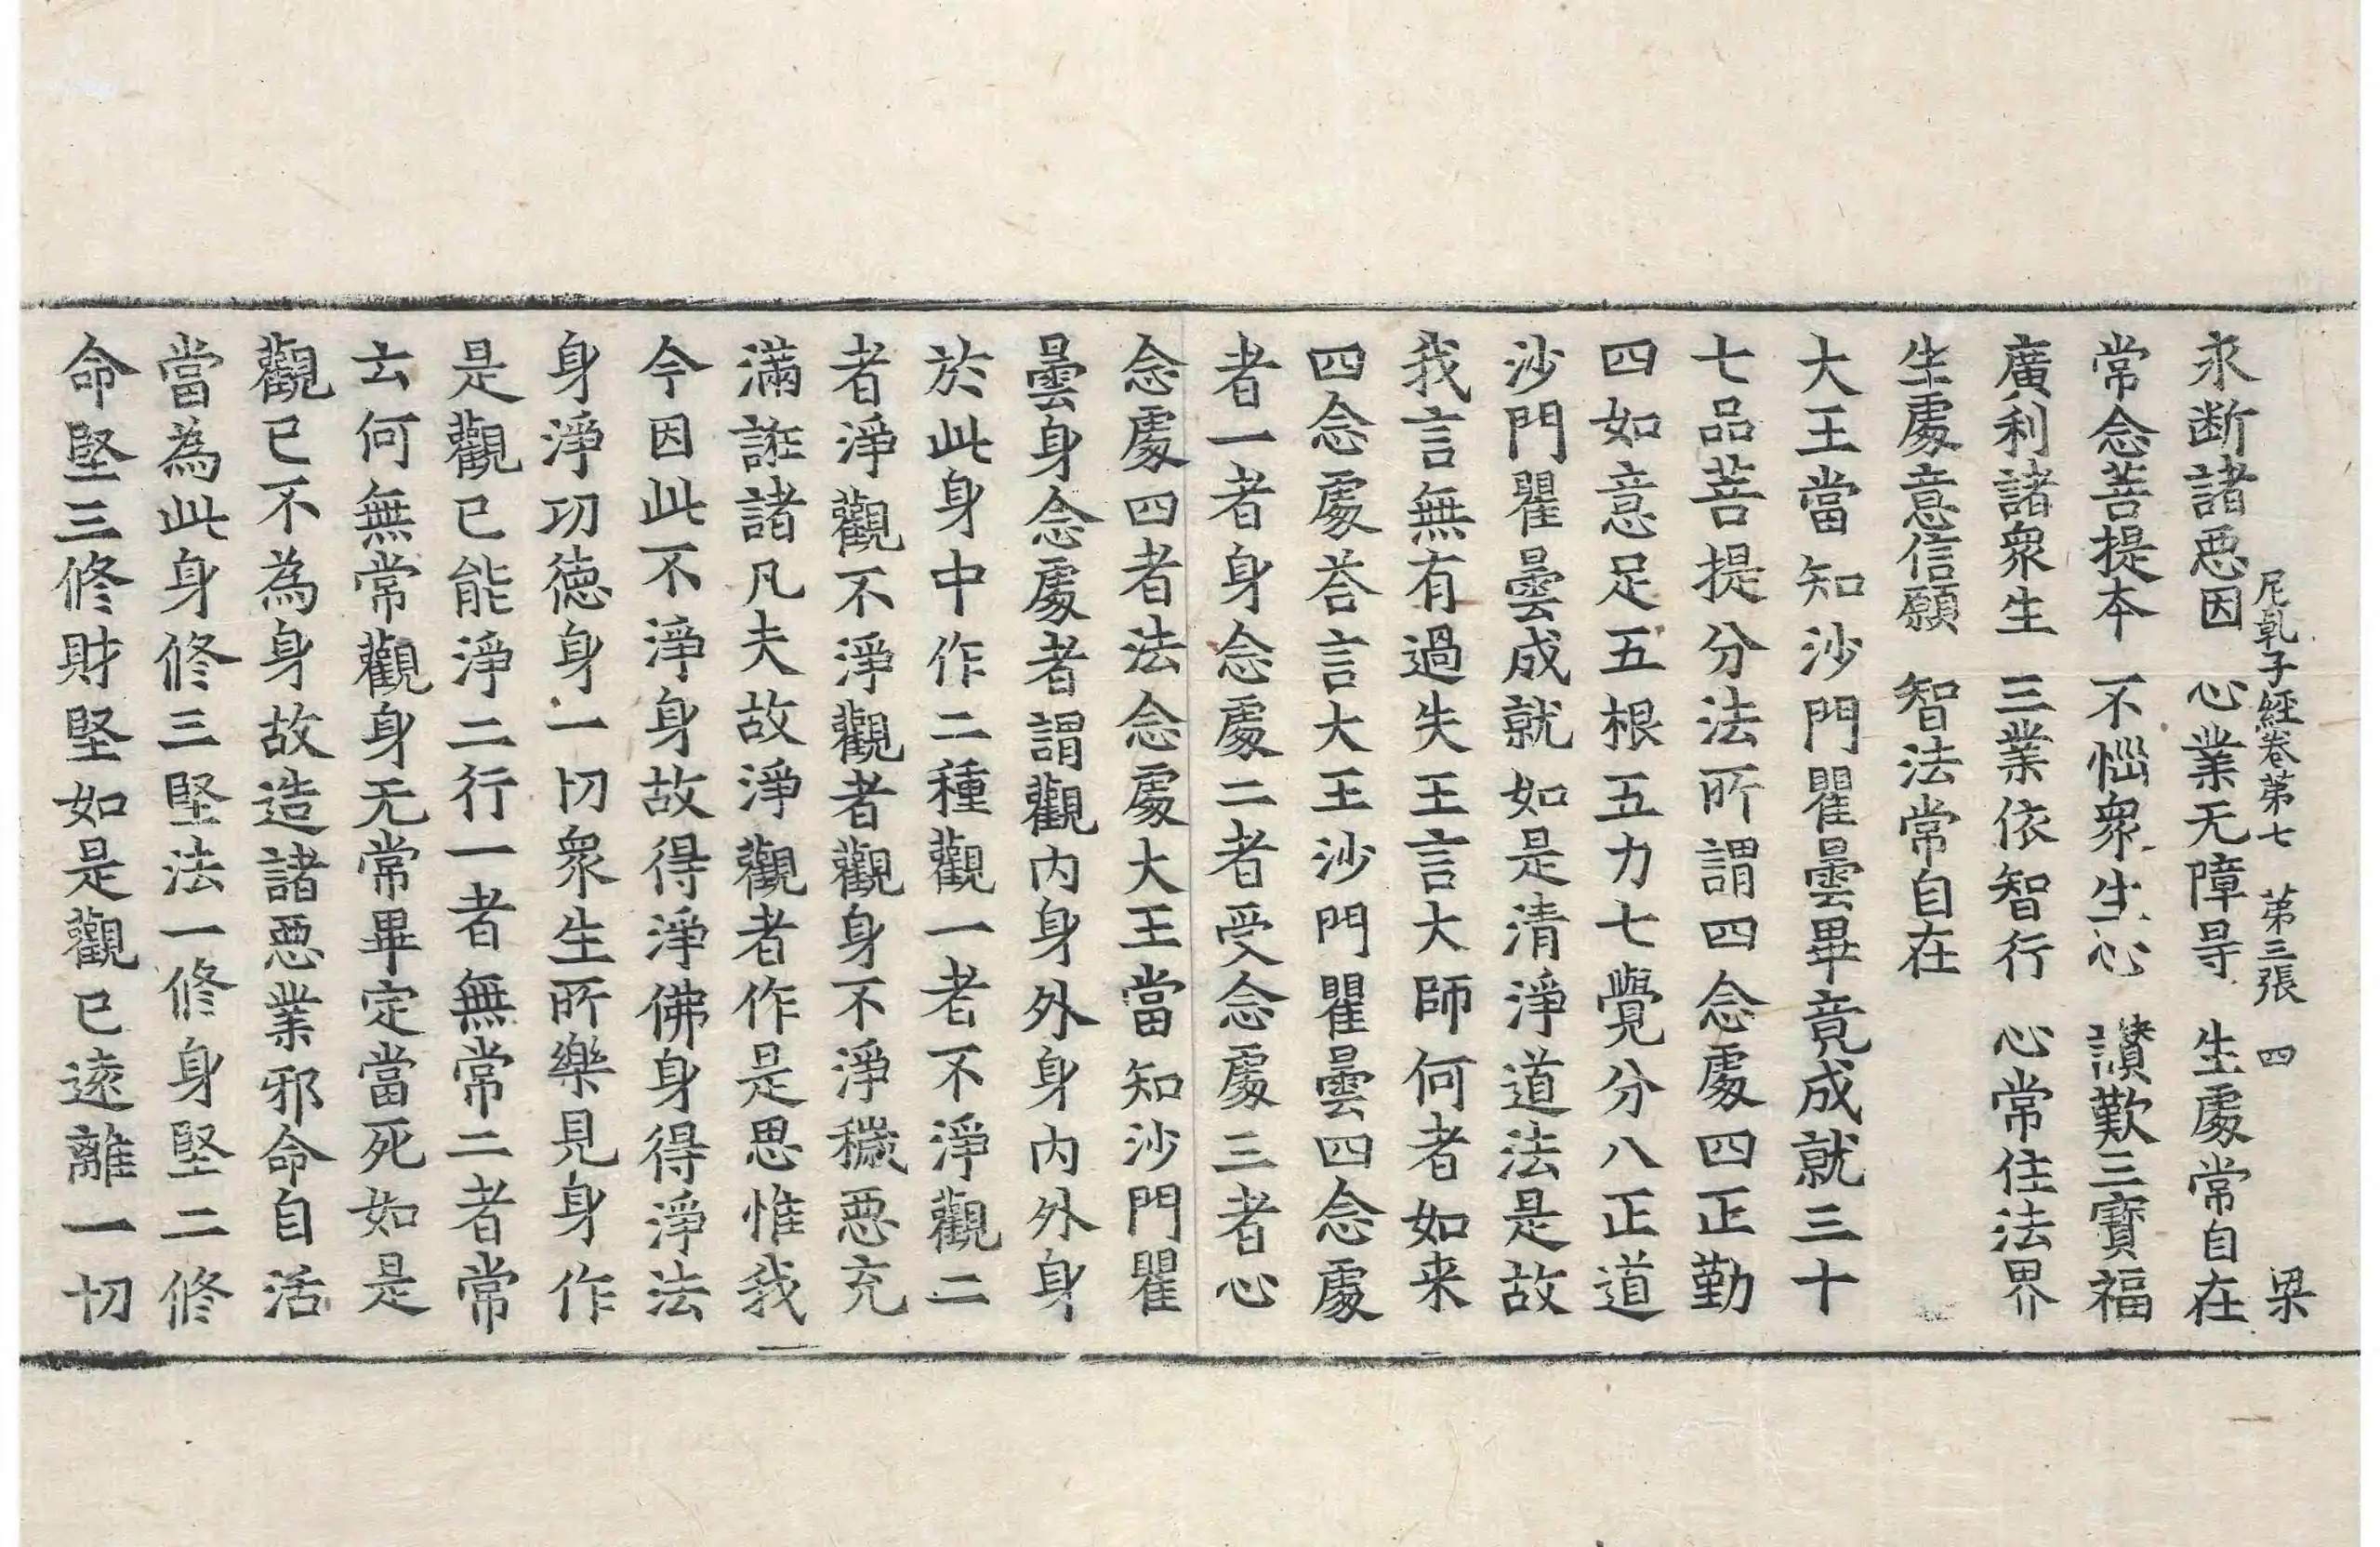 尼乹子經卷第七　第三張　四　梁
永断諸惡因　心業无障㝵　生處常自在
常念菩提本　不惱衆生心　讃歎三寶福
廣利諸衆生　三業依智行　心常住法界
生處意信願　智法常自在
大王當知沙門瞿曇畢竟成就三十
七品菩提分法所謂四念處四正勤
四如意足五根五力七覺分八正道
沙門瞿曇成就如是清淨道法是故
我言無有過失王言大師何者如来
四念處荅言大王沙門瞿曇四念處
者一者身念處二者受念處三者心
念處四者法念處大王當知沙門瞿
曇身念處者謂觀內身外身內外身
於此身中作二種觀一者不淨觀二
者淨觀不淨觀者觀身不淨穢惡充
滿誑諸凡夫故淨觀者作是思惟我
今因此不淨身故得淨佛身得淨法
身淨功德身一切衆生所樂見身作
是觀已能淨二行一者無常二者常
云何無常觀身无常畢定當死如是
觀已不為身故造諸惡業邪命自活
當為此身修三堅法一修身堅二修
命堅三修財堅如是觀已遠離一切